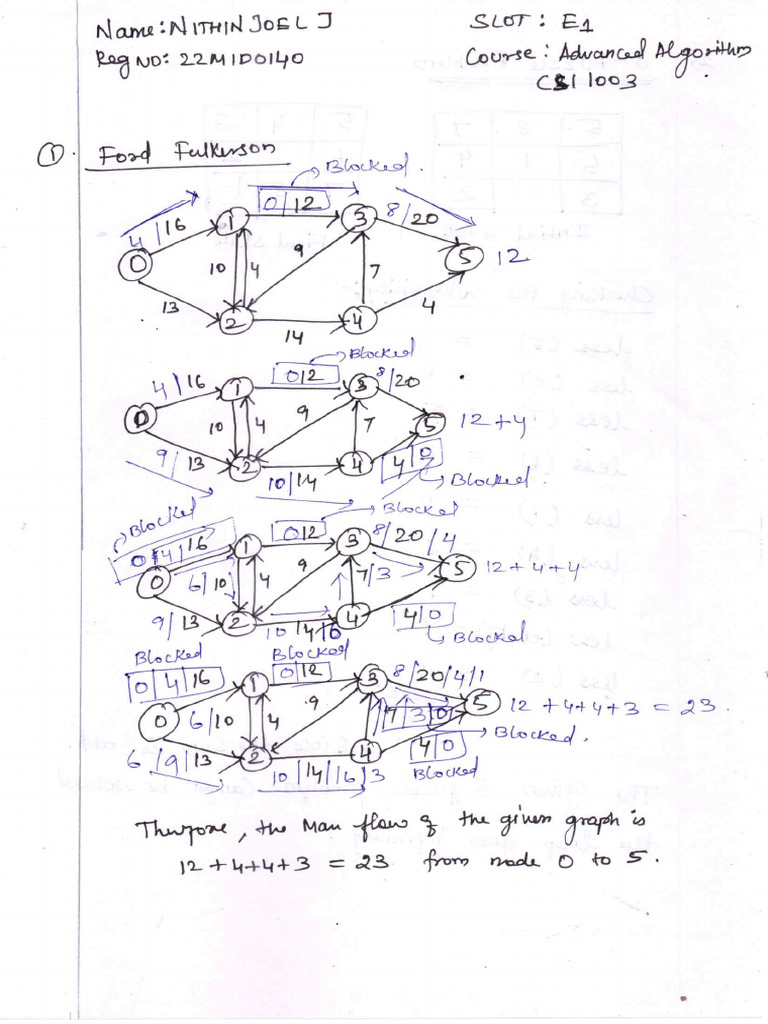 Name: NITHIN JOEL J SLOT: E1
Reg NO: 22MID0140 Course: Advanced Algorithm
CSI 1003
①. Ford Fulkerson
Blocked.
0/12
4/16 1 3 8/20
0 10 4 9 7 5 12
13 2 14 4 4
Blocked
4/16 1 0|12 3 8/20
0 10 4 9 7 5 12+4
9/13 2 10/14 4 4|0
Blocked.
Blocked Blocked
0|4|16 1 0|12 3 8/20/4
0 6/10 4 9 7/3 5 12+4+4
9/13 2 10/14/6 4 4|0
Blocked
Blocked Blocked
0|4|16 1 0|12 3 8/20/4/1
0 6/10 4 9 7|3|0 5 12+4+4+3 = 23.
6/9/13 2 10/14/6/3 4 4|0 Blocked.
Blocked
Therfore, the Max flow of the given graph is
12+4+4+3 = 23 from node 0 to 5.